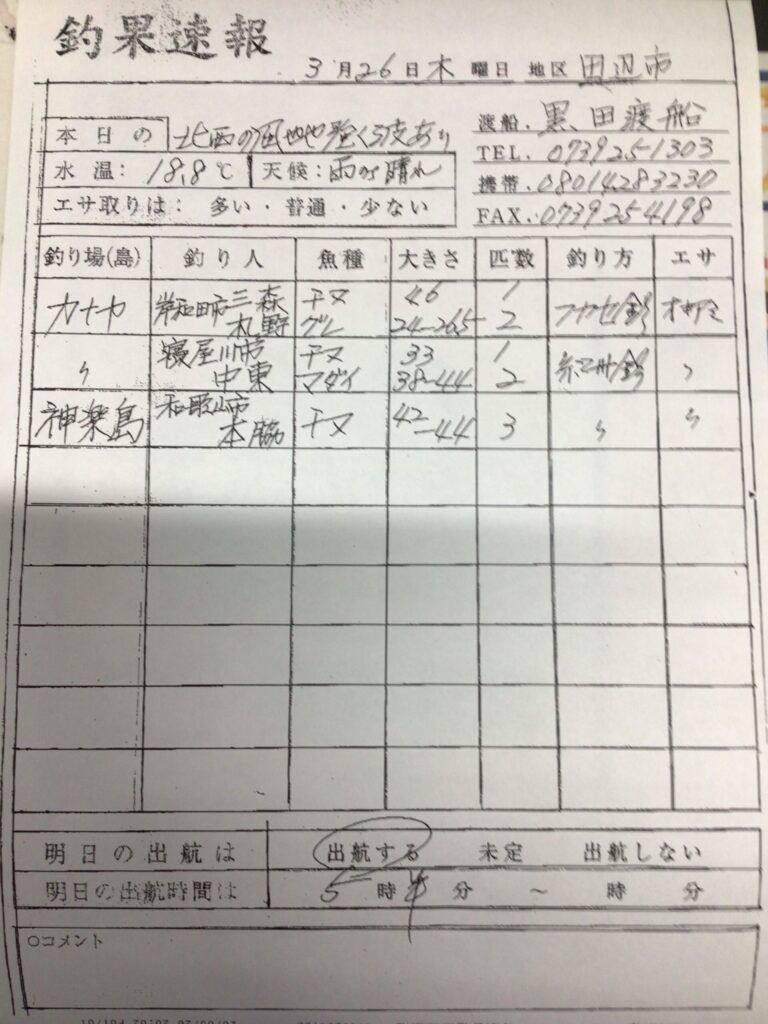 釣果速報
3月26日木曜日 地区 田辺市
本日の 北西の風 強く波あり
渡船.黒田渡船
水温: 18.8℃ 天候:雨のち晴れ
TEL. 0739251303
携帯.08014283230
エサ取りは: 多い・普通・少ない
FAX.0739254198
釣り場(島) 釣り人 魚種 大きさ 匹数 釣り方 エサ
カナヤ 岸和田市 三森 チヌ 46 1 フカセ釣 オキアミ
丸野 グレ 24-26.5 2
〃 寝屋川市 チヌ 33 1 〃
中東 マダイ 38-44 2
神楽島 和歌山市 チヌ 42 3 〃 〃
本脇 -44
明日の出航は 出航する 未定 出航しない
明日の出航時間は 5時 分 ~ 時 分
○コメント